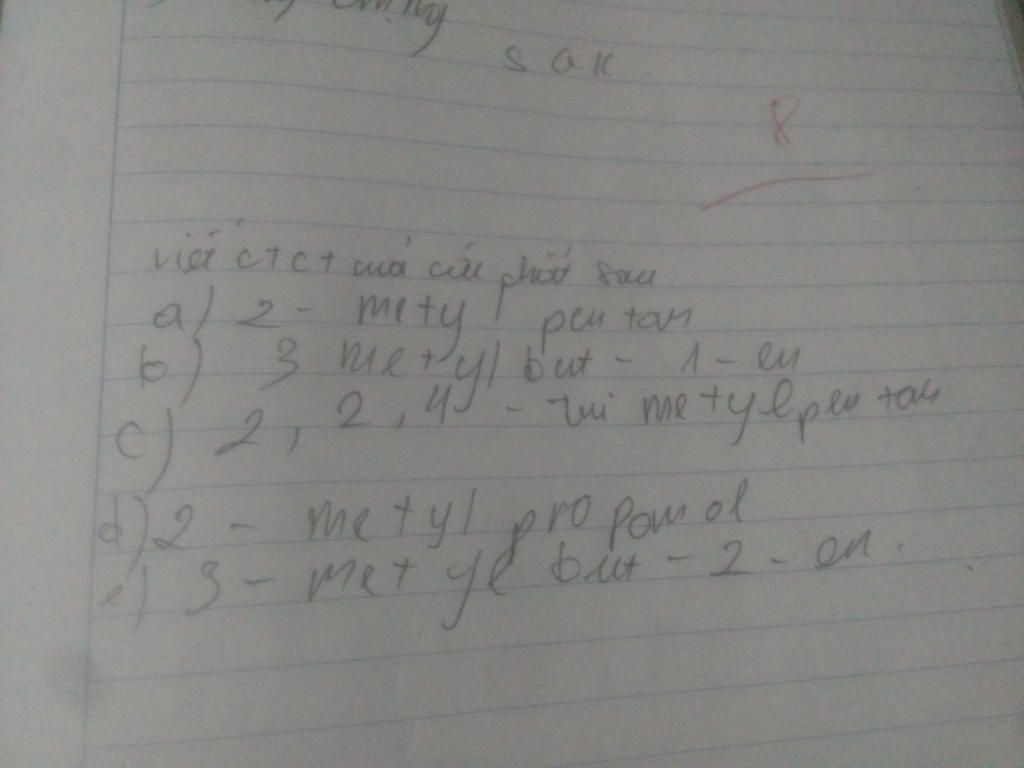 sau
8
viết CTCT của các chất sau
a) 2 - metyl pentan
b) 3 metyl but - 1 - en
c) 2, 2, 4 - tri metyl pentan
d) 2 - metyl propanol
e) 3 - metyl but - 2 - en.